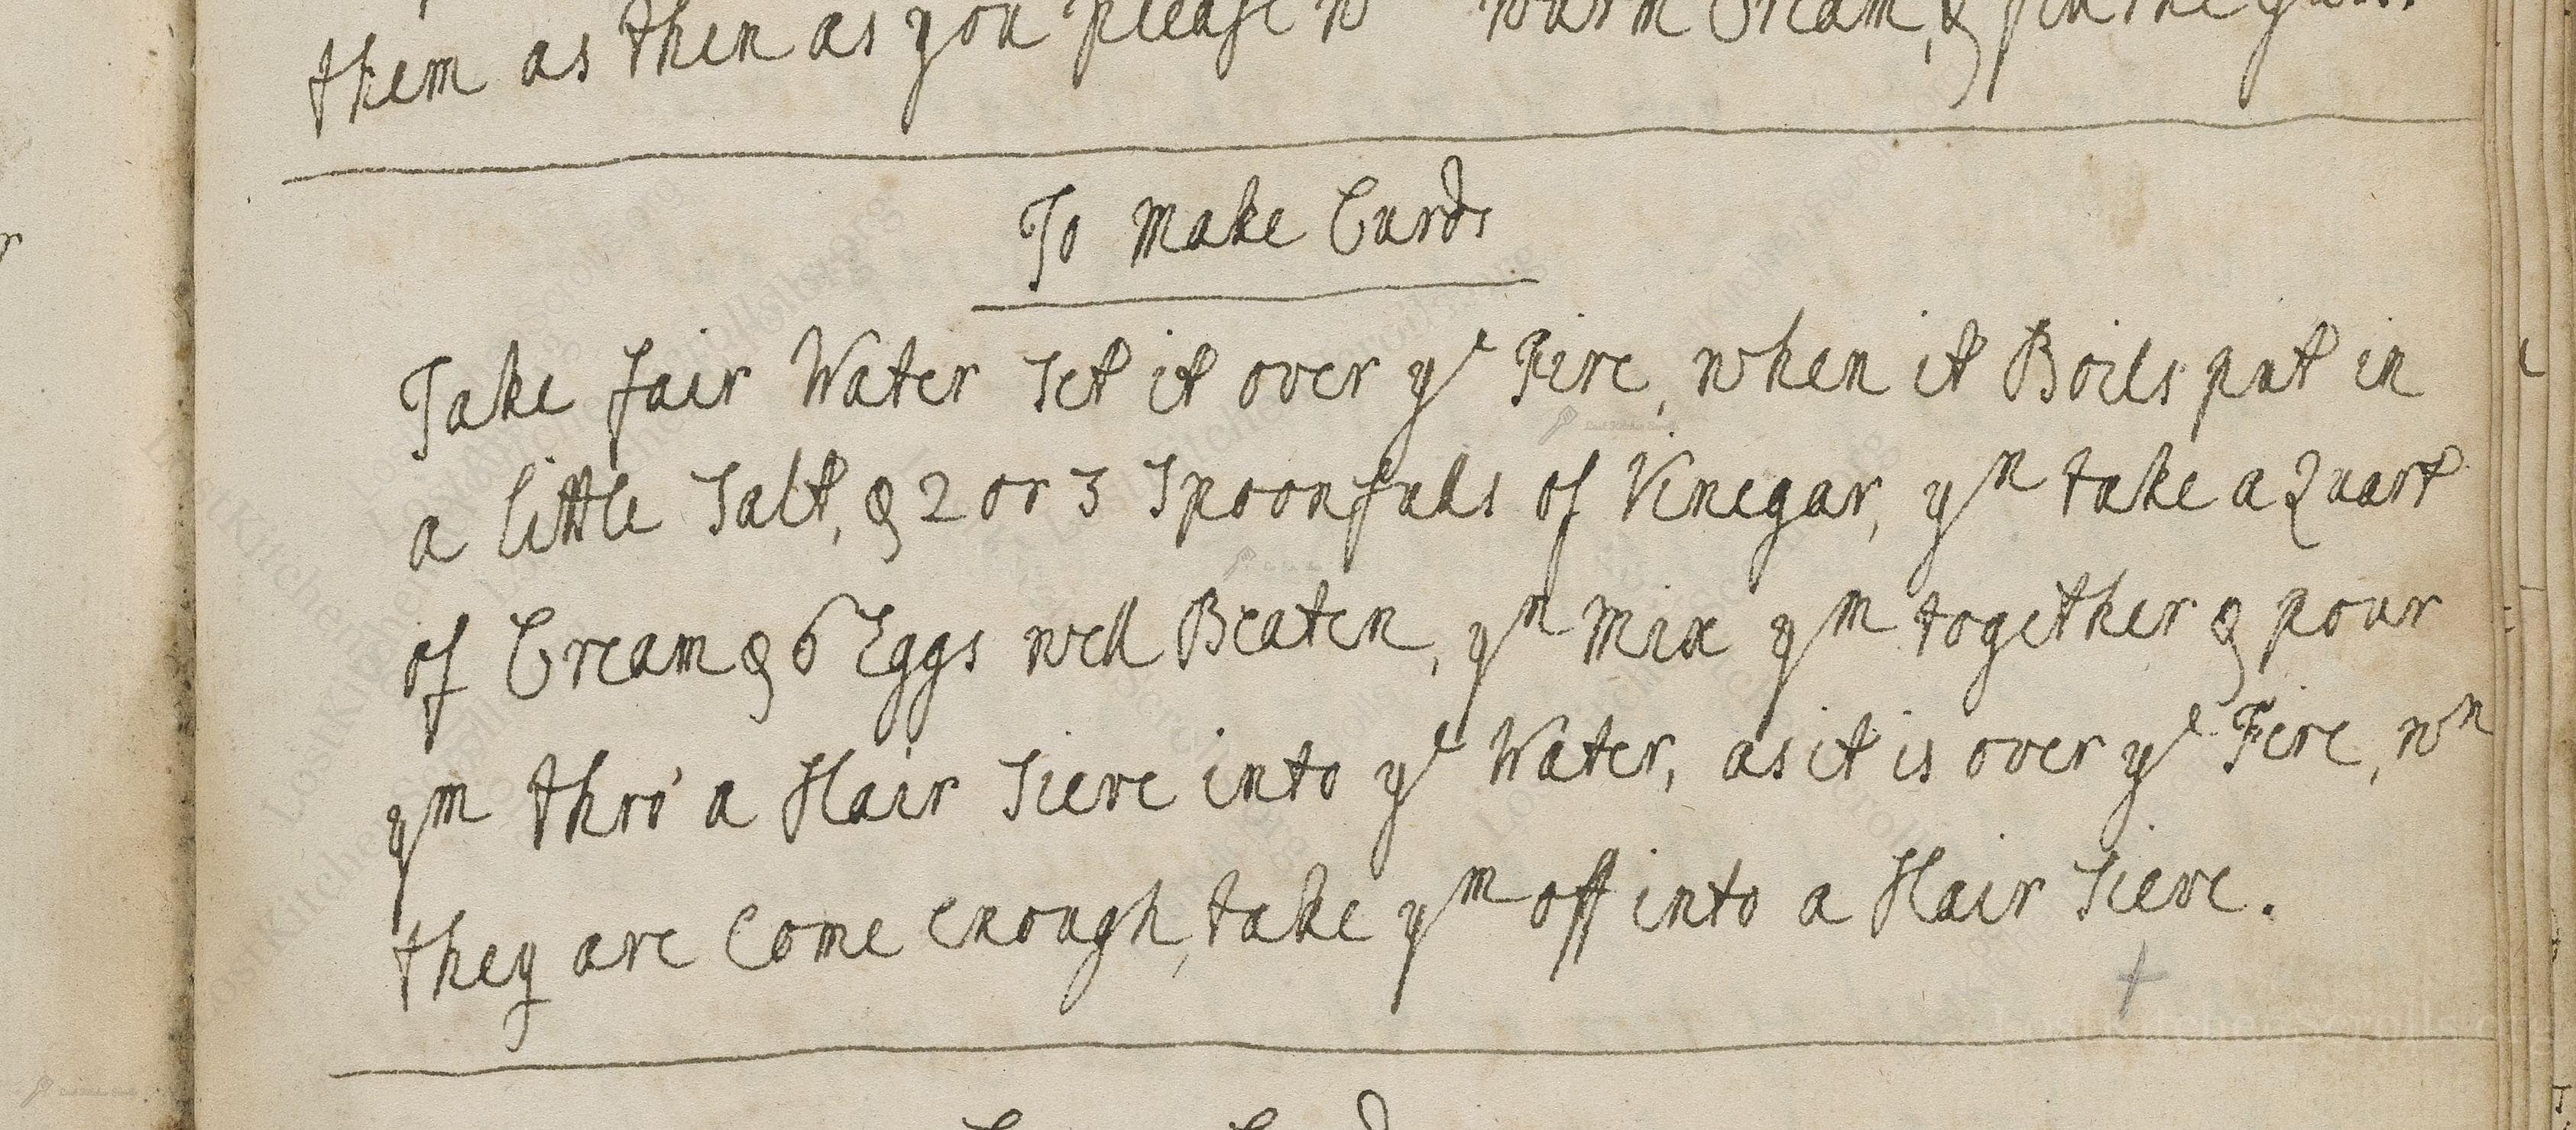 them as then as you please wth warm Cream, &
To Make Curds
Take fair Water Set it over ye Fire, when it Boils put in
a little Salt, & 2 or 3 Spoonfulls of Vinegar, yn take a Quart
of Cream & 6 Eggs well Beaten, yn Mix ym together & pour
ym thro' a Hair Sieve into ye Water, as it is over ye Fire, wn
they are Come enough, take ym off into a Hair Sieve.
+